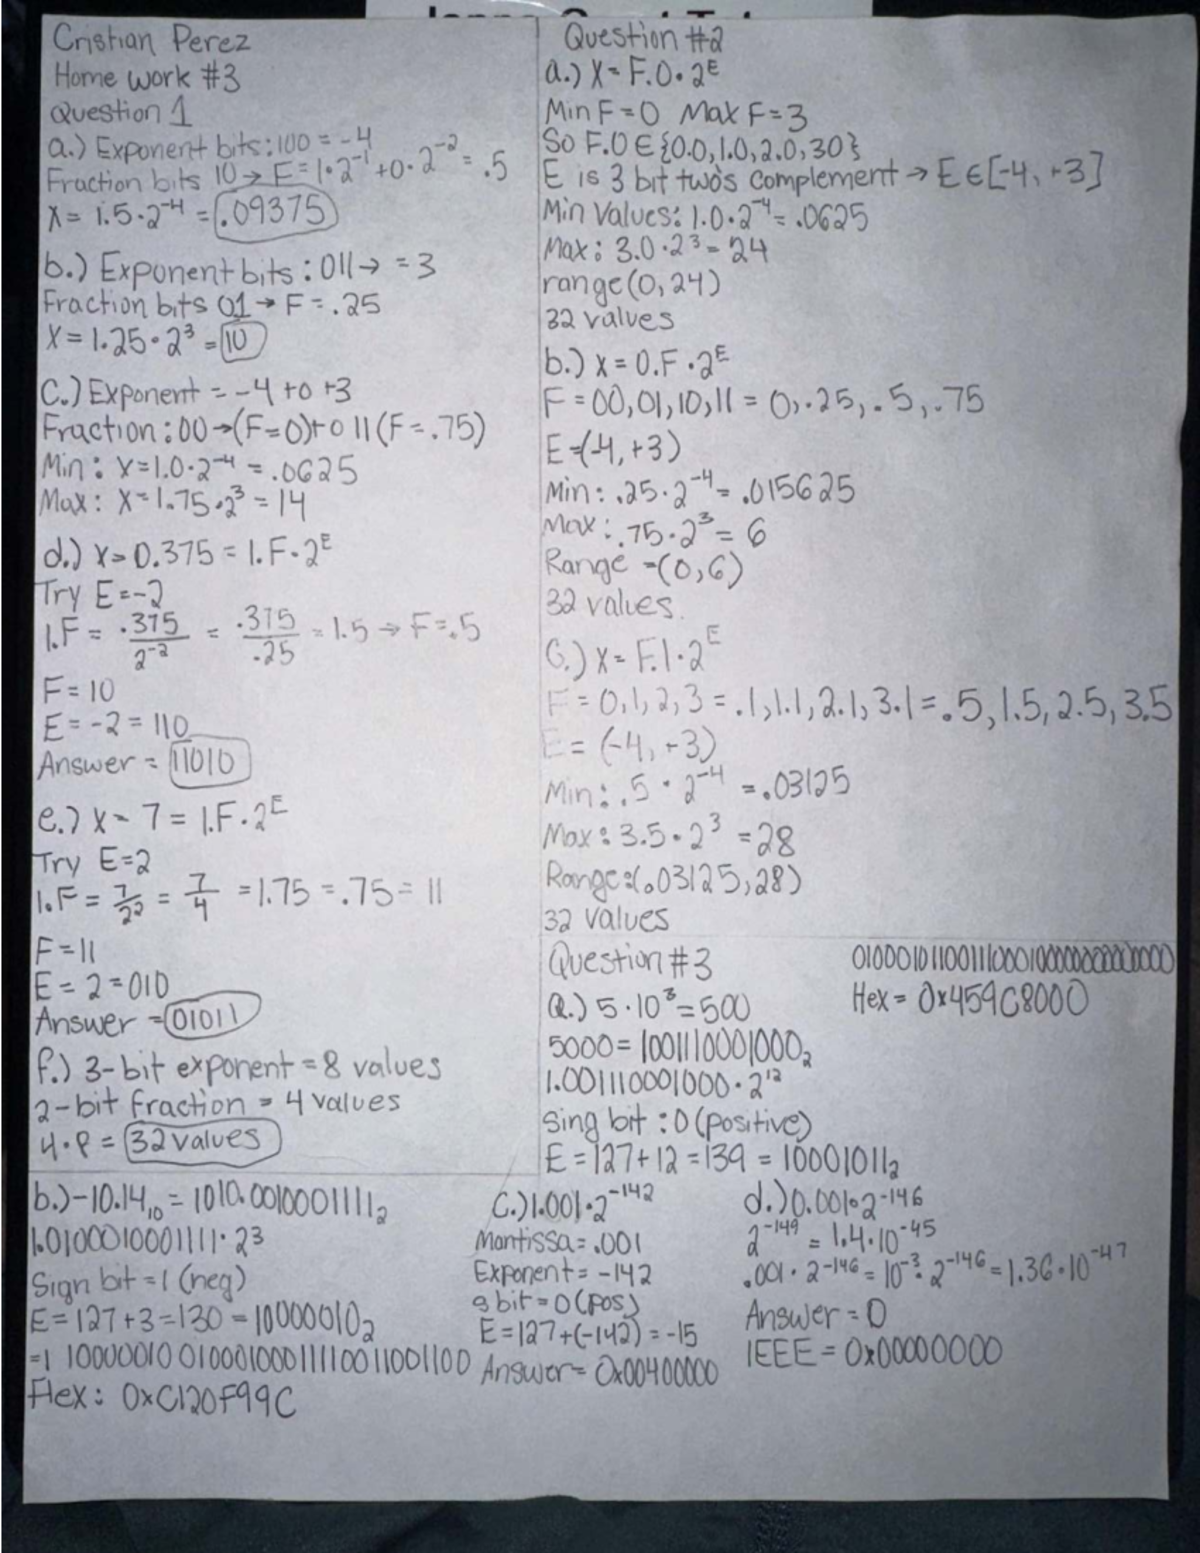 Cristian Perez
Home work #3
Question 1
a.) Exponent bits: 100 = -4
Fraction bits 10 → F = 1·2⁻¹ + 0·2⁻² = .5
X = 1.5·2⁻⁴ = .09375
b.) Exponent bits: 011 → = 3
Fraction bits 01 → F = .25
X = 1.25·2³ = 10
C.) Exponent = -4 to +3
Fraction: 00 → (F=0) to 11 (F=.75)
Min: X=1.0·2⁻⁴ = .0625
Max: X=1.75·2³ = 14
d.) X = 0.375 = 1.F·2ᴱ
Try E=-2
1.F = .375/2⁻² = .375/.25 = 1.5 → F=.5
F = 10
E = -2 = 110
Answer = 11010
e.) X - 7 = 1.F·2ᴱ
Try E=2
1.F = 7/2² = 7/4 = 1.75 = .75 = 11
F = 11
E = 2 = 010
Answer = 01011
f.) 3-bit exponent = 8 values
2-bit fraction = 4 values
4·8 = 32 values
Question #2
a.) X = F.0·2ᴱ
Min F = 0 Max F = 3
So F.0 ∈ {0.0, 1.0, 2.0, 30}
E is 3 bit two's complement → E ∈ [-4, +3]
Min Values: 1.0·2⁻⁴ = .0625
Max: 3.0·2³ = 24
range (0, 24)
32 values
b.) X = 0.F·2ᴱ
F = 00, 01, 10, 11 = 0, .25, .5, .75
E = (-4, +3)
Min: .25·2⁻⁴ = .015625
Max: .75·2³ = 6
Range = (0, 6)
32 values.
C.) X = F.1·2ᴱ
F = 0, 1, 2, 3 = .1, 1.1, 2.1, 3.1 = .5, 1.5, 2.5, 3.5
E = (-4, +3)
Min: .5·2⁻⁴ = .03125
Max: 3.5·2³ = 28
Range: (.03125, 28)
32 values
Question #3
a.) 5·10³ = 500
5000 = 1001110001000₂
1.001110001000·2¹²
Sing bit: 0 (positive)
E = 127 + 12 = 139 = 10001011₂
Hex = 0x459C8000
b.) -10.14₁₀ = 1010.0010001111₂
1.0100010001111·2³
Sign bit = 1 (neg)
E = 127 + 3 = 130 = 10000010₂
=1 10000010 01000100011111001100 1100
Hex: 0xC120F99C
C.) 1.001·2⁻¹⁴²
Mantissa = .001
Exponent = -142
s bit = 0 (pos)
E = 127 + (-142) = -15
Answer = 0x00400000
d.) 0.001·2⁻¹⁴⁶
2⁻¹⁴⁹ = 1.4·10⁻⁴⁵
.001·2⁻¹⁴⁶ = 10⁻³·2⁻¹⁴⁶ = 1.36·10⁻⁴⁷
Answer = 0
IEEE = 0x00000000